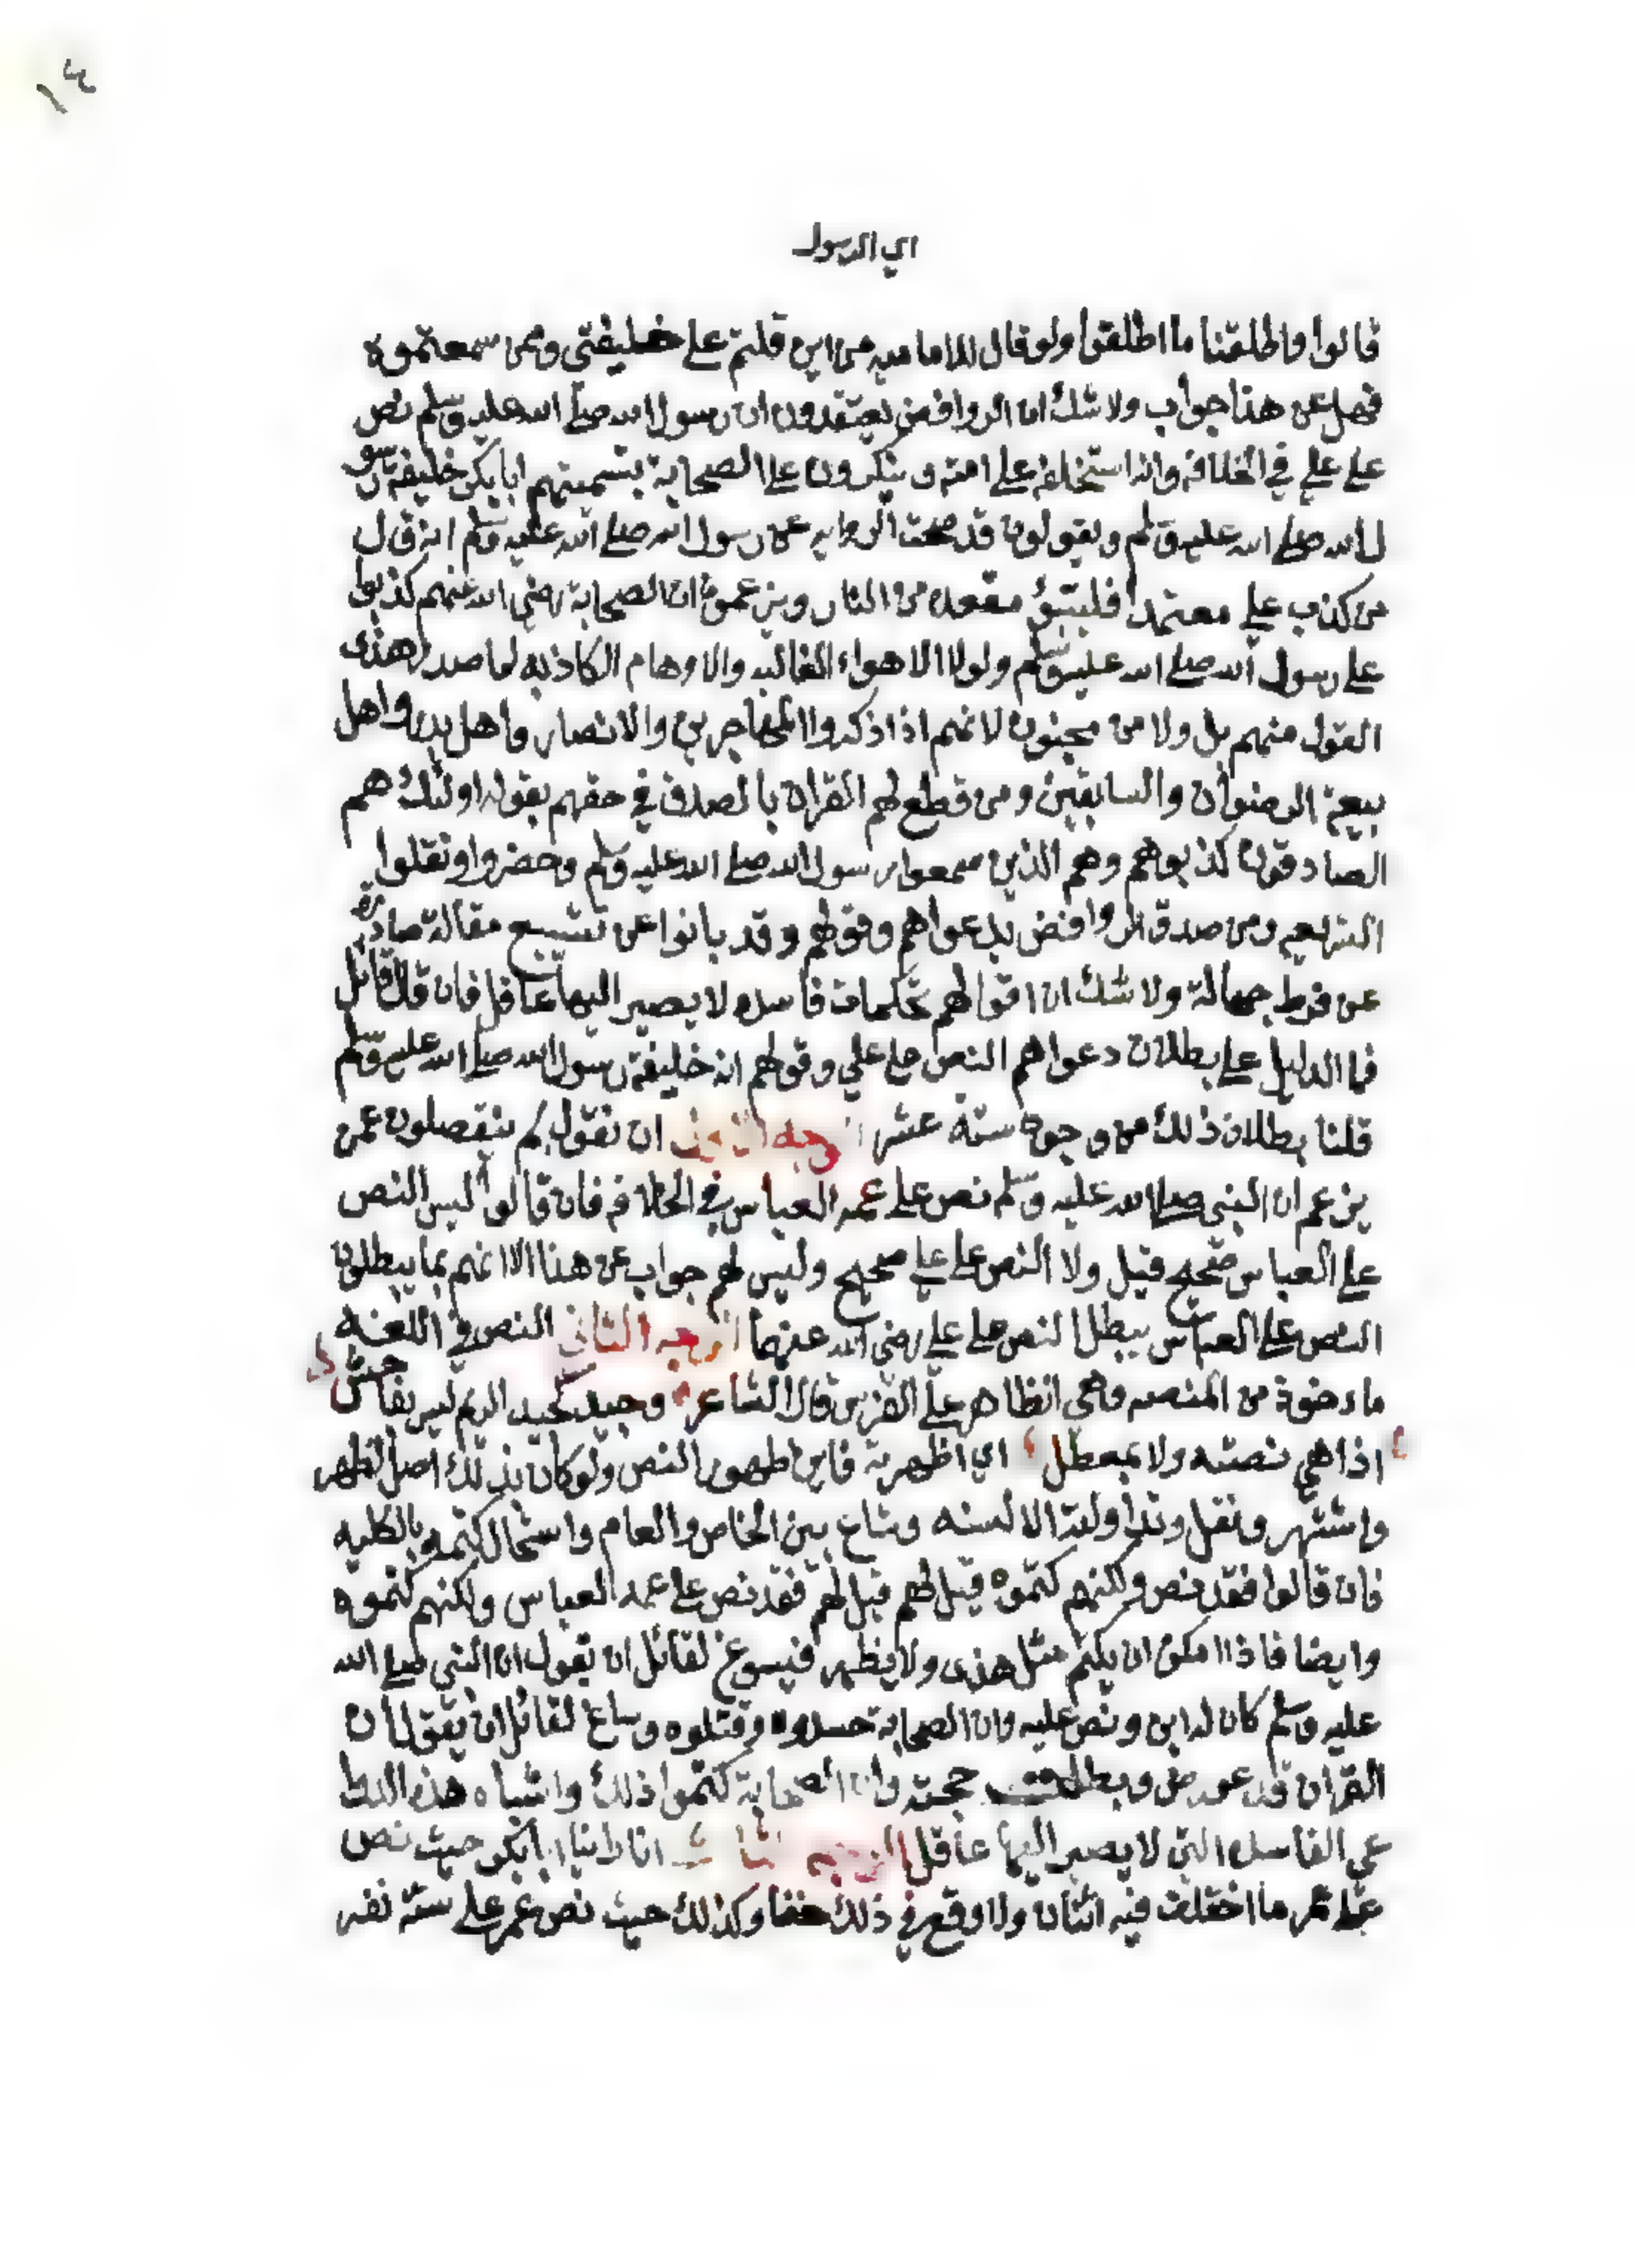 ١٣
اي الرسول
قالوا واطلقنا ما اطلقوا ولو قال للاماميه من اين قلتم علي خليفتي وممن سمعتموه
فهل عن هذا جواب ولا شك ان الروافض يعتقدون ان رسول الله صلى الله عليه وسلم نص
على علي في الخلافة وانه استخلفه على امته وينكرون على الصحابة بتسميتهم ابا بكر خليفة رسو
ل الله صلى الله عليه وسلم ويقولون قد صحت الروايه عن رسول الله صلى الله عليه وسلم انه قال
من كذب علي معتمدا فليتبؤ مقعده من النار ويزعمون ان الصحابة رضي الله عنهم كذبوا
على رسول الله صلى الله عليه وسلم ولولا الاهواء الغالبه والاوهام الكاذبه لما صدر هذا
القول منهم بل ولا من مجنون لانهم اذا ذكروا المهاجرين والانصار واهل بدر واهل
بيعة الرضوان والسابقين ومن قطع لهم القران بالصدق في حقهم بقوله اولئك هم
الصادقون كذبوهم وهم الذين سمعوا رسول الله صلى الله عليه وسلم وحضروا ونقلوا
الشريعه ومن صدق الروافض بدعواهم وقولهم وقد بانوا عن تشييع مقالة صادرة
عن فرط جهالة ولا شك ان اقوالهم تحكمات فاسده لا يصير اليها عاقل فان قال قائل
فما الدليل على بطلان دعواهم النص على علي وقولهم انه خليفة رسول الله صلى الله عليه وسلم
قلنا بطلان ذلك من وجوه ستة عشر الوجه الاول ان نقول بم ينفصلون عمن
يزعم ان النبي صلى الله عليه وسلم نص على عمه العباس في الخلافه فان قالوا ليس النص
على العباس صحيح قيل ولا النص على علي صحيح وليس لهم جواب عن هذا الا انهم بما يبطلون
النص على العباس يبطل النص على علي رضي الله عنهما الوجه الثاني النص في اللغه
ماخوذة من المنصه وهي الظاهر على الفرس قال الشاعر وجيد كجيد الريم ليس بفاحش
اذا هي نصته ولا بمعطل اي اظهرته فاين ظهور النص ولو كان بذلك اصل لظهر
واشتهر ونقل وتداولته الالسنه وشاع بين الخاص والعام واستحال كتمه بالكليه
فان قالوا فقد نص ولكنهم كتموه قيل لهم قيل لهم فقد نص على عمه العباس ولكنهم كتموه
وايضا فاذا امكن ان يكتم مثل هذا ولا يظهر فيسوغ لقائل ان يقول ان النبي صلى الله
عليه وسلم كان له ابن ونص عليه وان الصحابة حسدوه وقتلوه وساغ لقائل ان يقول ان
القران قد عورض وبطلت حجته وان الصحابة كتموا ذلك واشباه هذه الدعا
وي الفاسده التي لا يصير اليها عاقل الوجه الثالث انا راينا ابا بكر حيث نص
على عمر ما اختلف فيه اثنان ولا وقع في ذلك خفا وكذلك حيث نص عمر على ستة نفر